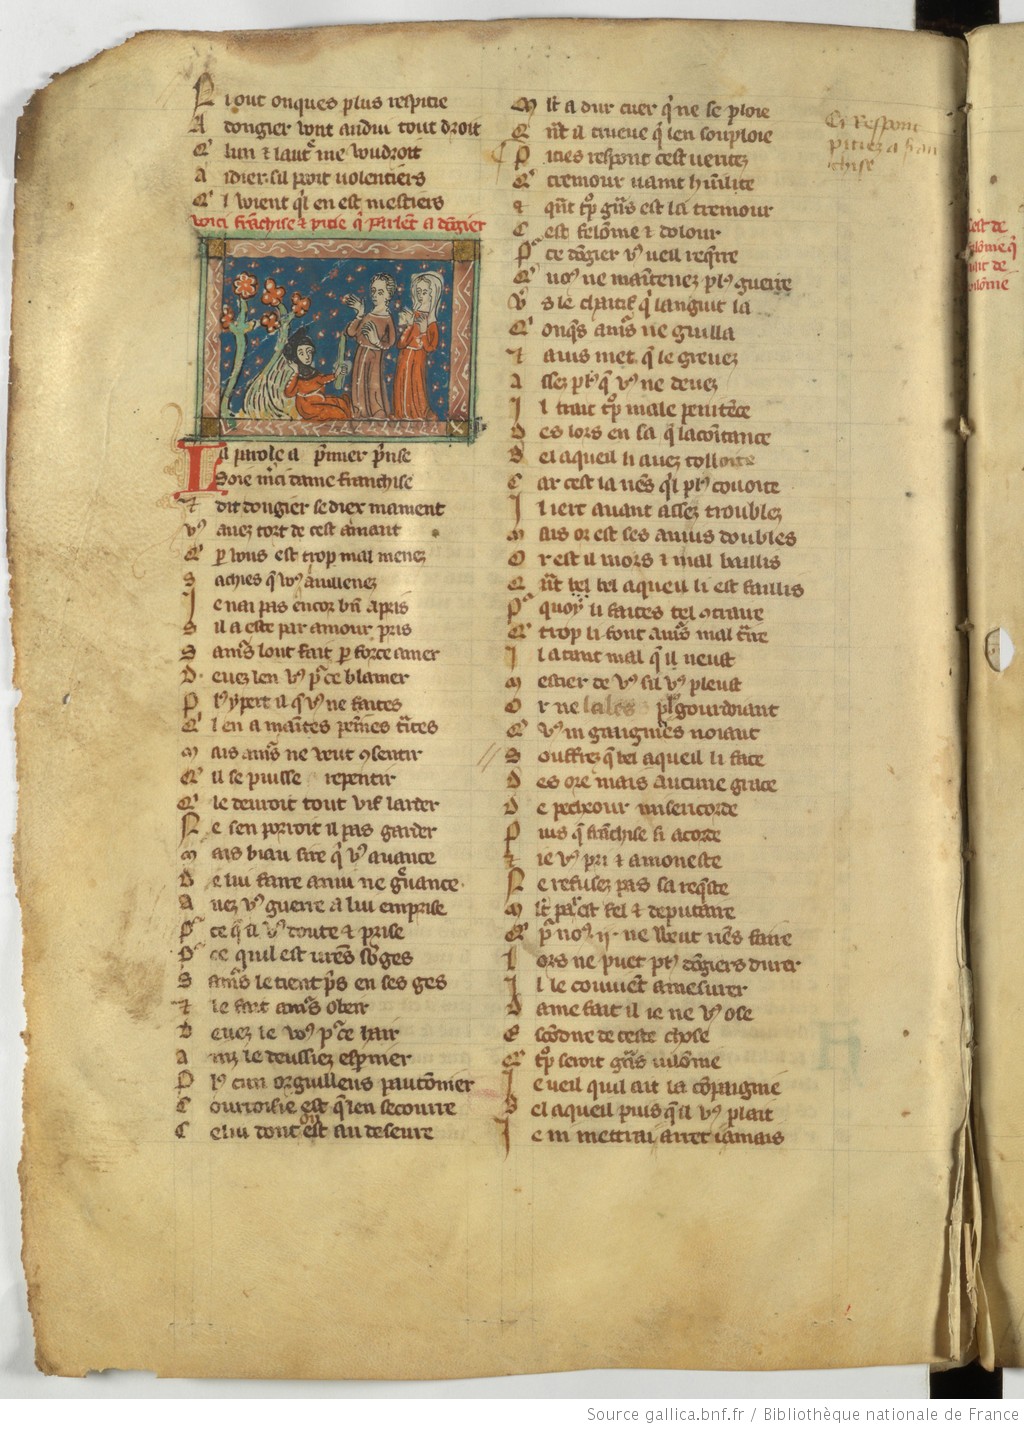 N i out onques plus respitie
A dongier vont andui tout droit
Q' lun ⁊ laut' me voudroit
A idier sil puoit volentiers
Q' l voient q'l en est mestiers
voici franchise ⁊ pitie q' parlent a dangier
L a parole a p'mier p'nse
Soie m'ci dame franchise
⁊ dit dongier se diex mament
v9 avez tort de cest amant
Q' p vous est trop mal menez
S achies q' vo9 auillenez
J e nai pas encor bn apris
S il a este par amour pris
S amors lout fait p force amer
D evez len v9 p'ce blamer
P l9 y pert il q' v9 ne faites
Q' l en a maintes peines traites
M ais amors ne veut 9sentir
Q' il se puisse repentir
Q' le devroit tout vif larder
N e sen porroit il pas garder
M ais biau sire q' v9 avance
D e lui faire anui ne g'vance
A vez v9 guerre a lui emprise
P' ce q' il v9 doute ⁊ prise
P' ce quil est vres sorges
S amors le tient pris en ses ges
⁊ le fait amors obeir
D evez le vo9 p'ce hair
A inz le deussiez esp'nier
P l9 cun orguilleus pautonier
C ourtoisie est q' len secoure
C elui dont on est au deseure
M lt a dur cuer q' ne se ploie
Q' nt il trueve q' len souploie
P ities respont cest veritez
Q' cremour vaint humilite
⁊ qnt trop grans est la cremour
C est felonie ⁊ dolour
P' ce dangier v9 vueil req're
Q' vo9 ne maintenez pl9 guerre
V' s le chaitif q' languit la
Q' onq's amors ne guilla
⁊ avis met q' le grevez
A ssez pl9 q' v9 ne devez
J l trait trop male penitence
D es lors en sa q' lacointance
B el aqueil li avez tolloite
C ar cest la riens q'l pl9 covoite
J l iert avant assez troublez
M ais or est ses anuis doubles
O r est il mors ⁊ mal baillis
Q nt bel aqueil li est faillis
P' quoy li faites tel 9traire
Q' trop li font amors mal traire
J l a tant mal q' il neust
M estier de v9 sil v9 pleust
O r ne lales pl9 gourdoiant
Q' v9 ni gaignies noiant
S ouffrez q' bel aqueil li face
D es ore mais aucune grace
D e pecheour misericorde
P uis q' franchise si acorde
⁊ ie v9 pri ⁊ amoneste
N e refusez pas sa req'ste
M lt par est fel ⁊ deputaire
Q' p' no9 .ij. ne veut riens faire
L ors ne puet pl9 dangiers durer
J l le convient amesurer
D ame fait il ie ne v9 ose
E scondire de ceste chose
Q' trop seroit grans vilonie
J e vueil quil ait la compaignie
B el aqueil puis q' il v9 plait
J e ni mettrai arret iamais
Ci Respont
pitiez a fran
chise
cest de
felonie q'